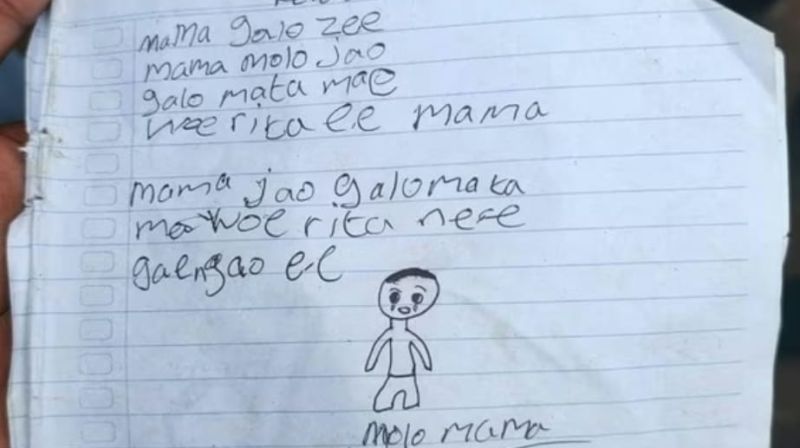 mama galo zee
mama molo jao
galo mata mae
woe rita ee mama
mama jao galo mata
mae woe rita ne-e
gae ngao e-e
molo mama